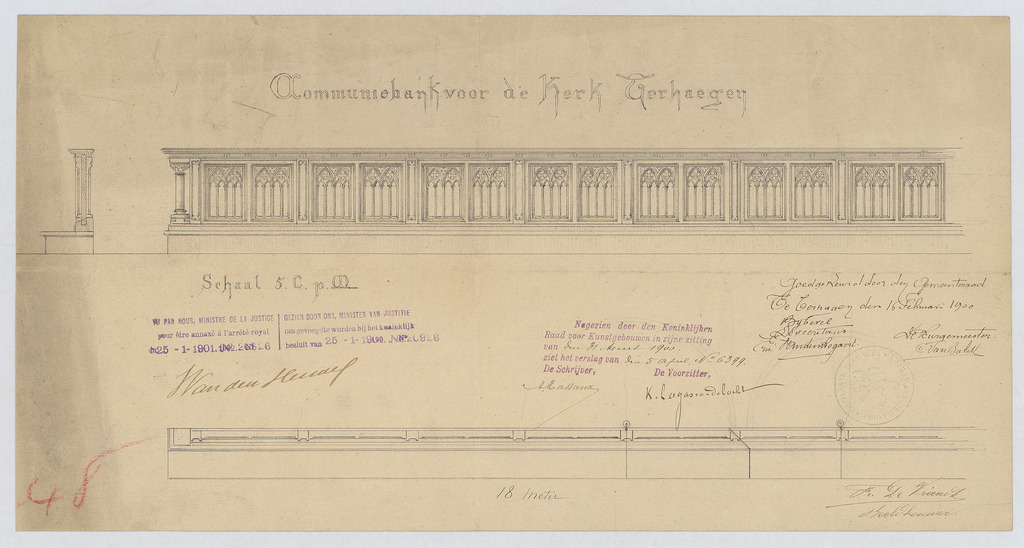 Communiebank voor de Kerk Terhaegen
Schaal 5. C. p. M.
VU PAR NOUS, MINISTRE DE LA JUSTICE
pour être annexé à l'arrêté royal
du 25 - 1 - 1901. Nº. 20826
GEZIEN DOOR ONS, MINISTER VAN JUSTITIE
om gevoegd te worden bij het koninklijk
besluit van 25 - 1 - 1901. Nº. 20826
Nagezien door den Koninklijken
Raad voor Kunstgebouwen in zijne zitting
van den 31 Maart 1900
ziet het verslag van den 5 April, Nº 6399.
De Schrijver,
De Voorzitter,
A. Massaux
K. Lagasse-de Locht
Goedgekeurd door den Gemeenteraad
Te Terhagen den 16 Februari 1900
Bij bevel
De Secretaris
De Burgemeester
18 Meter
Fr. De Vriendt
Beeldhouwer
48